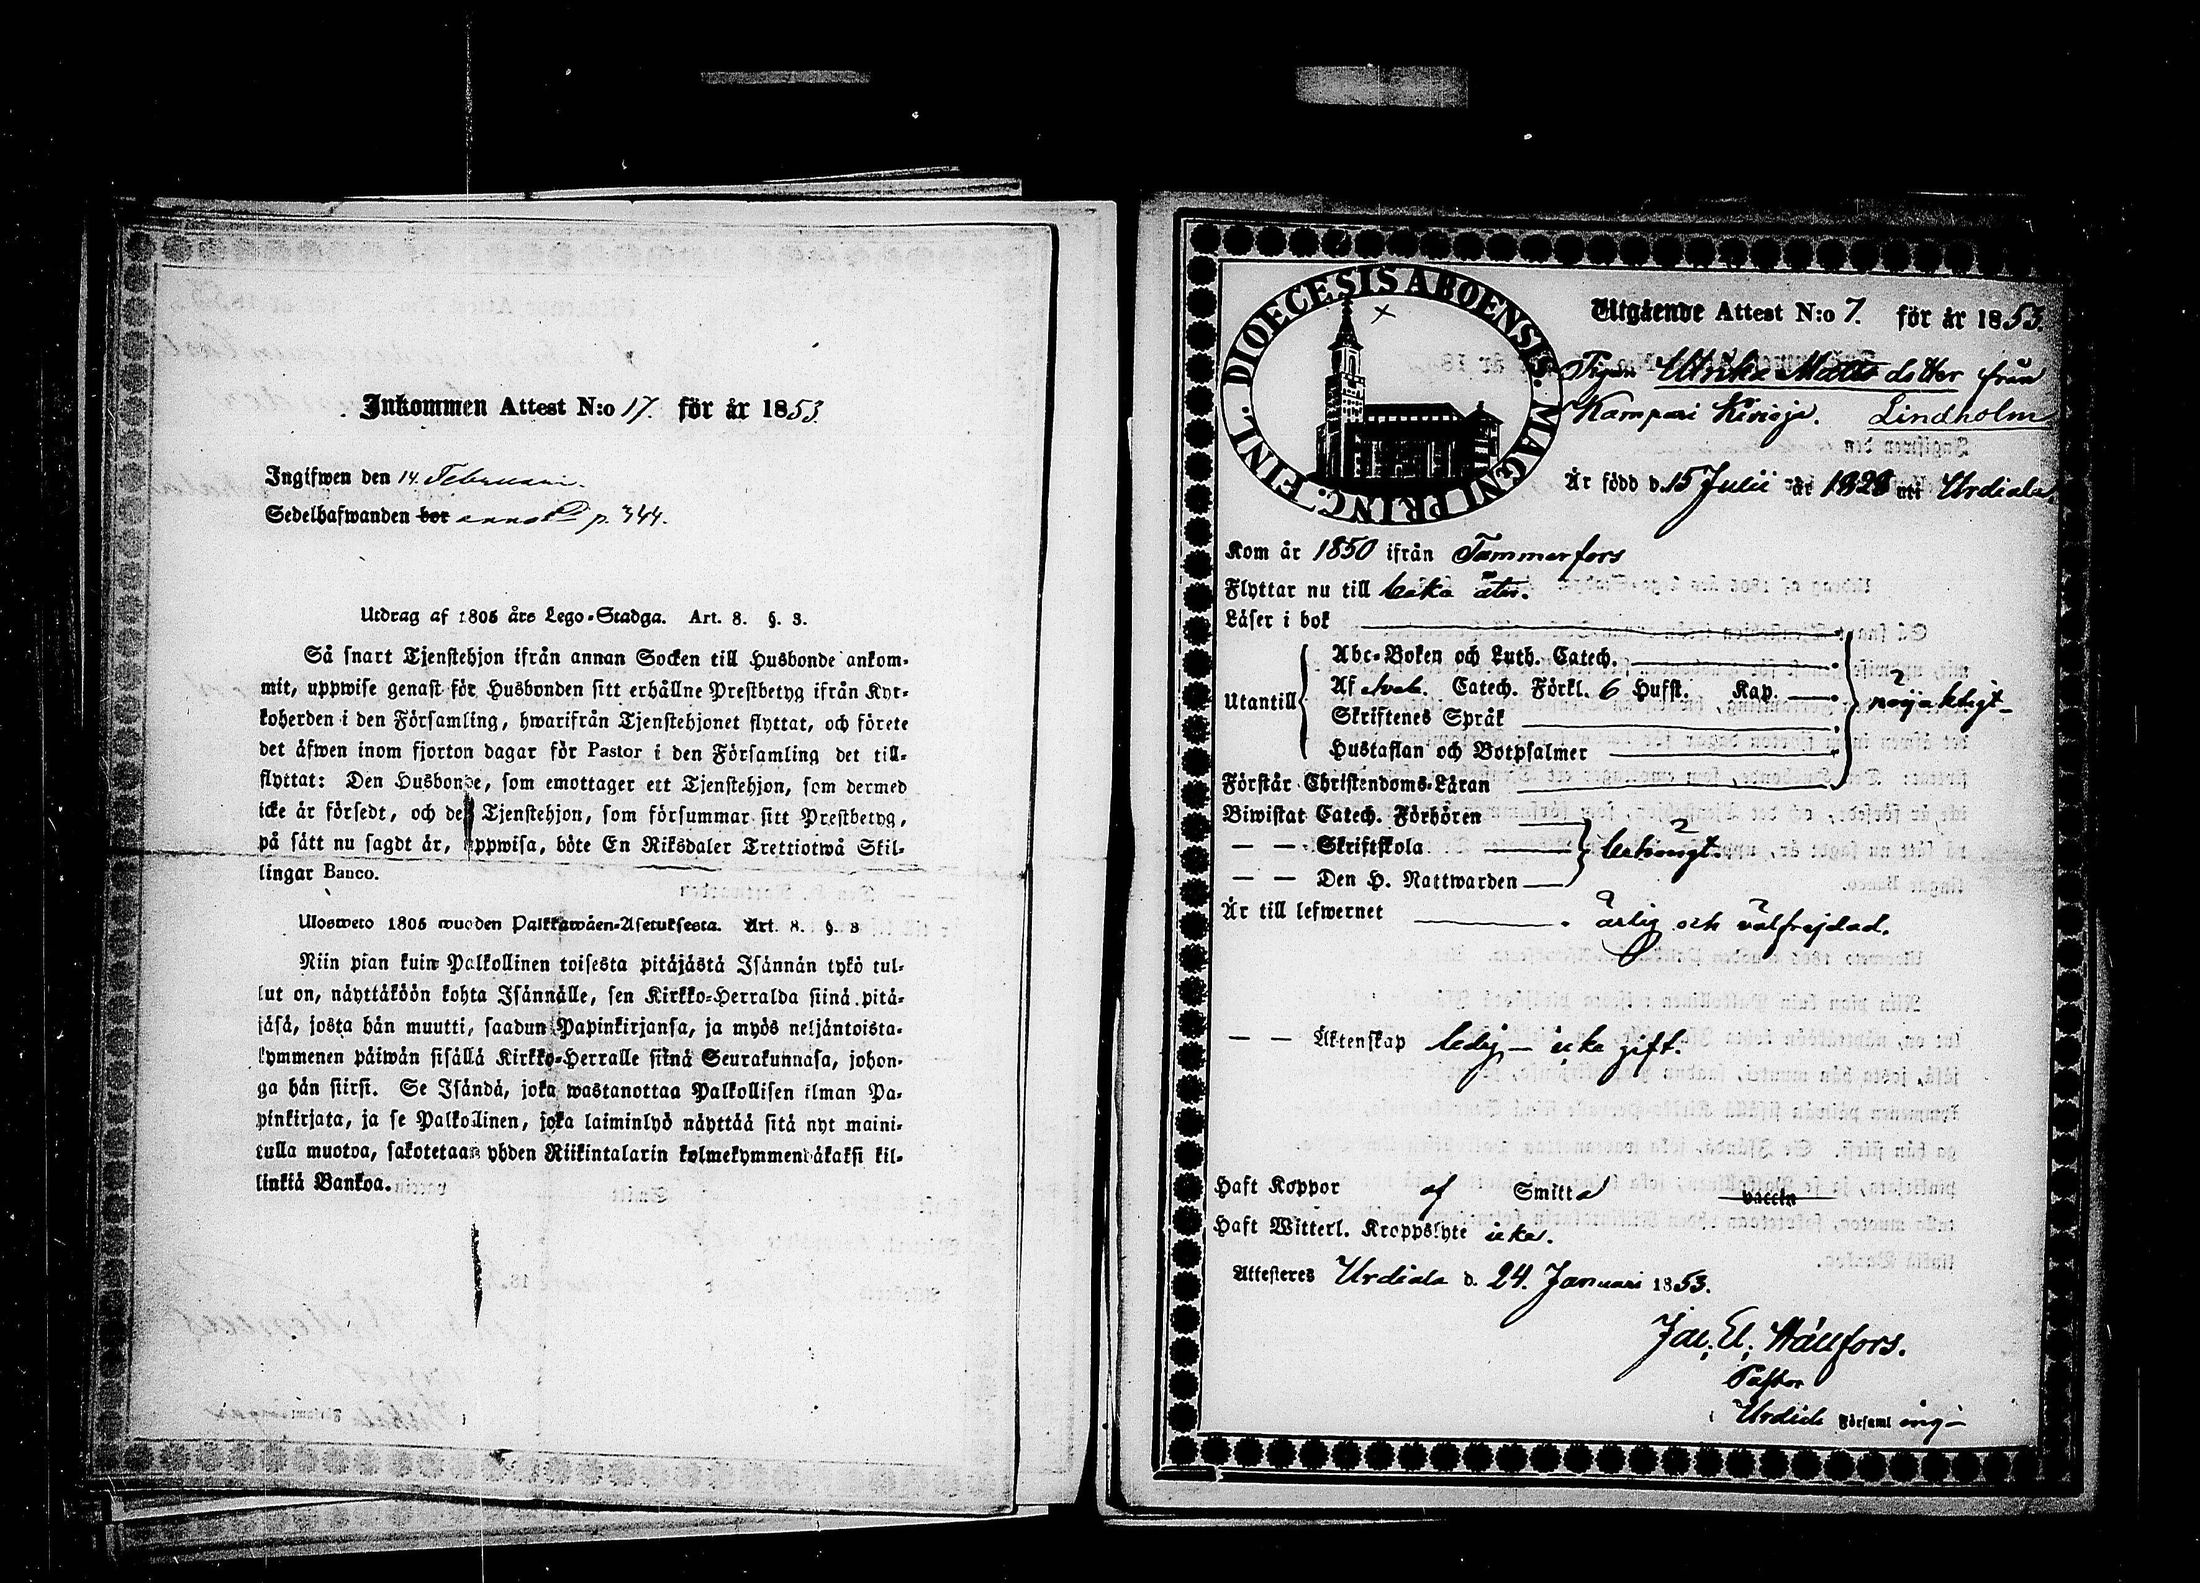 Inkommen Attest N:o 17. för år 1853.
Ingifwen den 14 Februari.
Sedelhafwanden bor p. 344.
Utdrag af 1805 års Lego-Stadga. Art. 8. §. 3.
Så snart Tjenstehjon ifrån annan Socken till Husbonde ankom-
mit, uppwise genast för Husbonden sitt erhållne Prestbetyg ifrån Kyr-
koherden i den Församling, hwarifrån Tjenstehjonet flyttat, och förete
det äfwen inom fjorton dagar för Pastor i den Församling det till-
flyttat: Den Husbonde, som emottager ett Tjenstehjon, som dermed
icke är försedt, och det Tjenstehjon, som försummar sitt Prestbetyg,
på sätt nu sagdt är, uppwisa, böte En Riksdaler Trettiotwå Skil-
lingar Banco.
Ulosweto 1805 wuoden Palkkawäen-Asetuksesta. Art. 8. §. 3
Niin pian kuin Palkollinen toisesta pitäjästä Isännän tykö tul-
lut on, näyttäköön kohta Isännälle, sen Kirkko-Herralda siinä pitä-
jäsä, josta hän muutti, saadun Papinkirjansa, ja myös neljäntoista-
kymmenen päiwän sisällä Kirkko-Herralle siinä Seurakunnasa, johon-
ga hän siirsi. Se Isändä, joka wastanottaa Palkollisen ilman Pa-
pinkirjata, ja se Palkollinen, joka laiminlyö näyttää sitä nyt maini-
tulla muotoa, sakotetaan yhden Riikintalarin kolmekymmendäkaksi kil-
linkiä Bankoa.
DIOECESIS ABOENSIS. MAGNI PRINC. FINL.
Utgående Attest N:o 7. för år 1853.
Pigan Ulrika Matts dotter från
Kampari Kirioja. Lindholm
Är född d. 15 Julii år 1828 uti Urdiala
Kom år 1850 ifrån Tammerfors
Flyttar nu till lika åter.
Läser i bok
Abc-Boken och Luth. Catech.
Utantill Af Catech. Förkl. 6 Hufst. Kap. nöjaktigt
Skriftenes Språk
Hustaflan och Botpsalmer
Förstår Christendoms-Läran
Biwistat Catech. Förhören
— — Skriftskola behörigt.
— — Den H. Nattwarden
Är till lefwernet ärlig och välfrejdad.
— — Äktenskap ledig – icke gift.
Haft Koppor af Smitta vaccin
Haft Witterl. Kroppslyte icke.
Attesteres Urdiala d. 24. Januari 1853.
Hällfors.
Pastor
Urdiala Församling